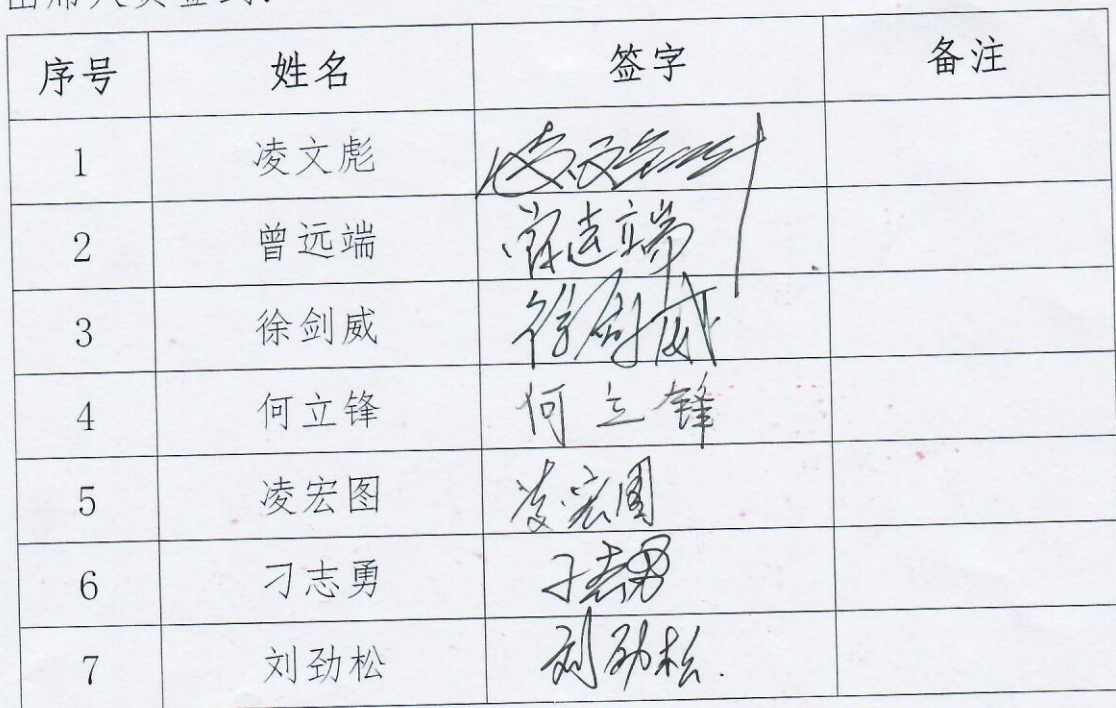 出席人员签到:
序号 姓名 签字 备注
1 凌文彪 凌文彪
2 曾远端 曾远端
3 徐剑威 徐剑威
4 何立锋 何立锋
5 凌宏图 凌宏图
6 刁志勇 刁志勇
7 刘劲松 刘劲松.